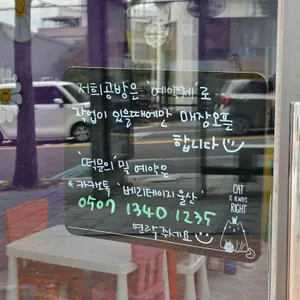 저희공방은 '예약제'로
작업이 있을때에만 매장오픈
합니다
'문의' 및 예약은
* 카카오톡 '베리테이지 울산'
0507 1340 1235
연락주세요
CAT
IS ALWAYS
RIGHT